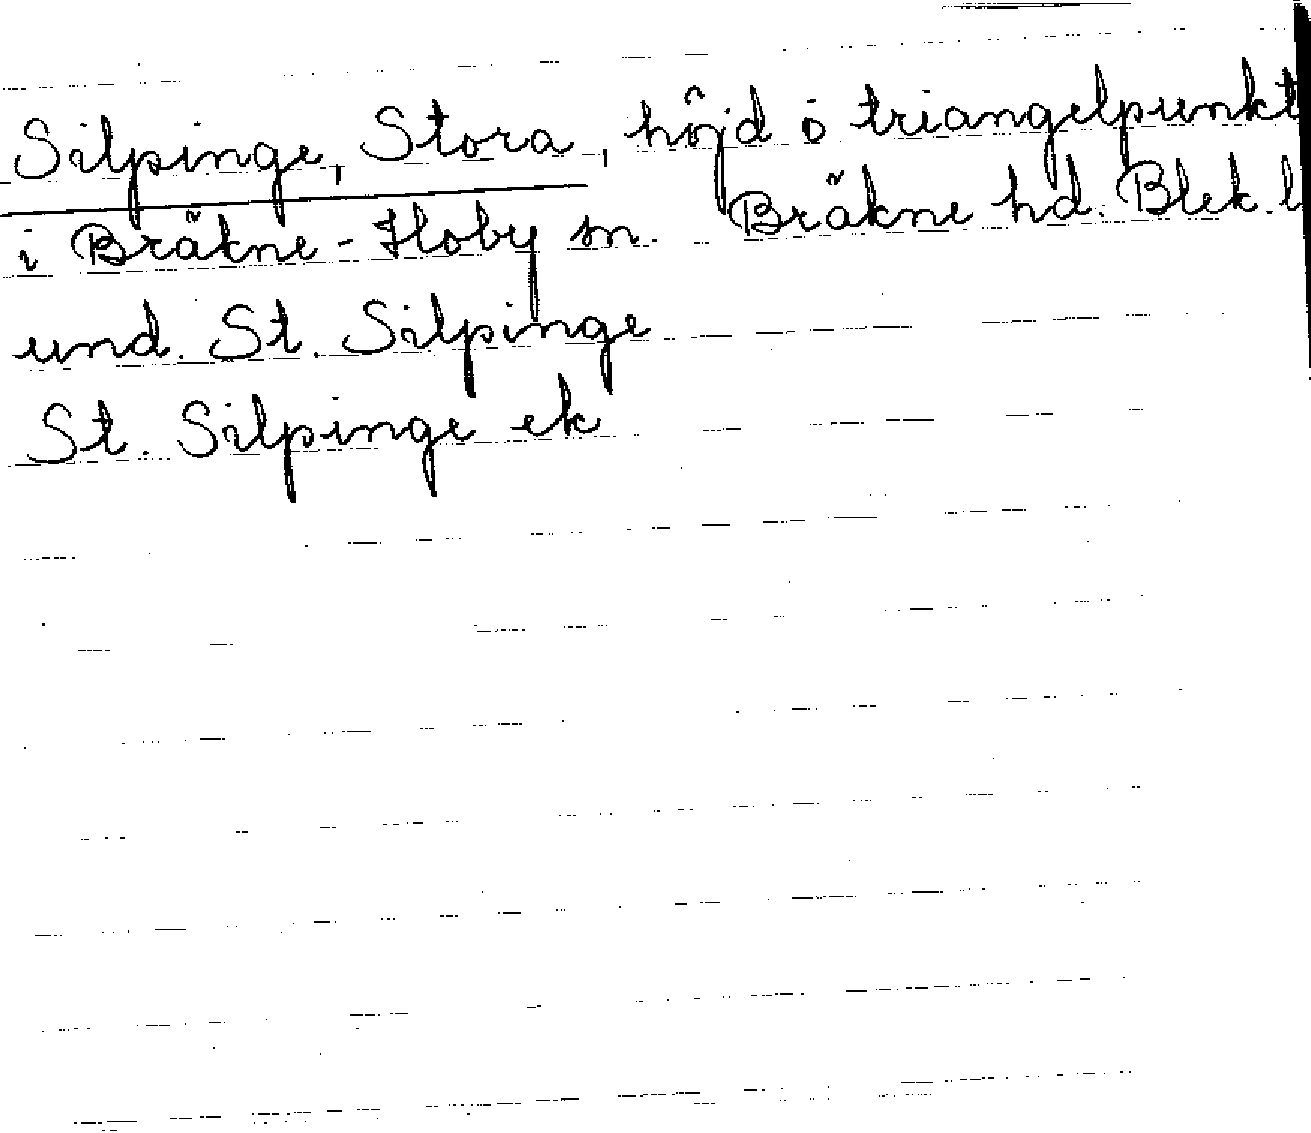 Silpinge, Stora, höjd o triangelpunkt
i Bräkne-Hoby sn. Bräkne hd. Blek. l
und. St. Silpinge
St. Silpinge ek